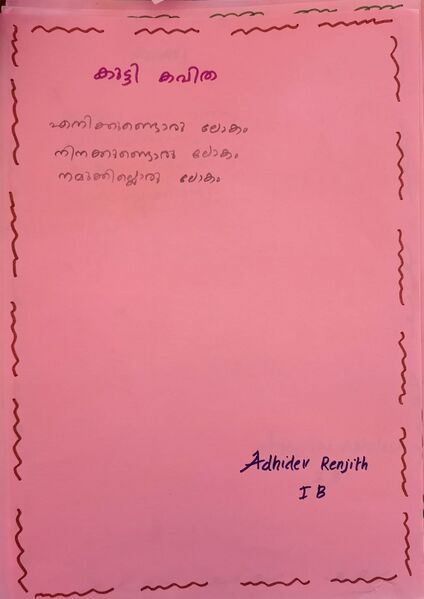 കുട്ടി കവിത
എനിക്കുണ്ടൊരു ലോകം
നിനക്കുണ്ടൊരു ലോകം
നമുക്കില്ലൊരു ലോകം
Adhidev Renjith
I B